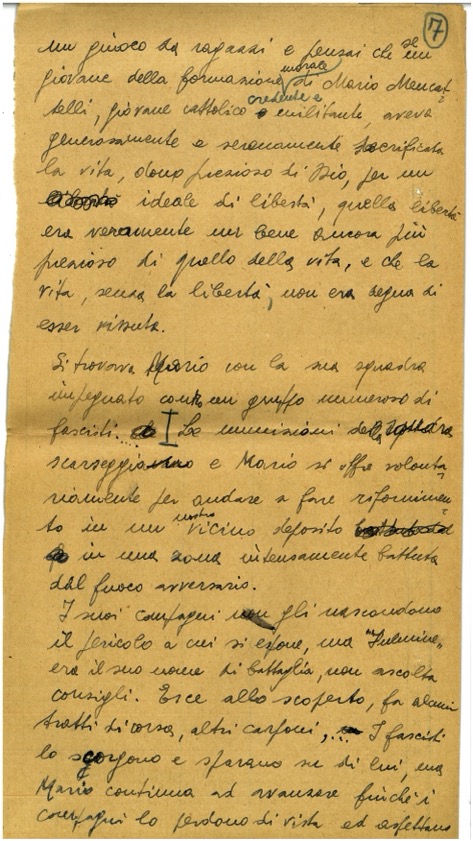 7
un giuoco da ragazzi e pensai che se un
giovane della formazione morale di Mario Mencat-
telli, giovane cattolico credente e militante, aveva
generosamente e serenamente sacrificata
la vita, dono prezioso di Dio, per un
ideale di libertà, quella libertà
era veramente un bene ancora più
prezioso di quello della vita, e che la
vita, senza la libertà, non era degna di
esser vissuta.
Si trovava Mario con la sua squadra
impegnato contro un gruppo numeroso di
fascisti. Le munizioni della squadra
scarseggiavano e Mario si offre volonta-
riamente per andare a fare rifornimen-
to in un nostro vicino deposito
in una zona intensamente battuta
dal fuoco avversario.
I suoi compagni non gli nascondono
il pericolo a cui si espone, ma "Fulmine"
era il suo nome di battaglia, non ascolta
consigli. Esce allo scoperto, fa alcuni
tratti di corsa, altri carponi, I fascisti
lo scorgono e sparano su di lui, ma
Mario continua ad avanzare finché i
compagni lo perdono di vista ed aspettano